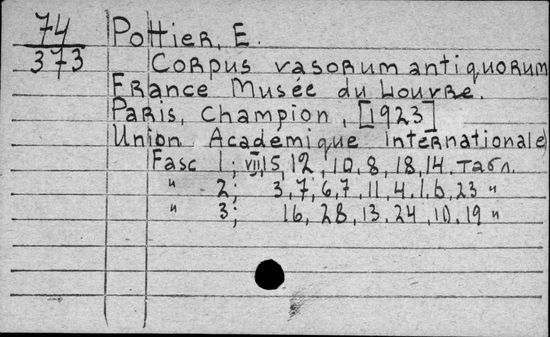 74
373
Pottier, E.
Corpus vasorum antiquorum
France Musée du Louvre.
Paris, Champion, [1923]
Union Académique Internationale)
Fasc 1; VII, 15, 12, 10, 8, 18, 14. табл.
" 2; 3, 7, 6, 7, 11, 4, 1, 6, 23 "
" 3; 16, 28, 13, 24, 10, 19 "